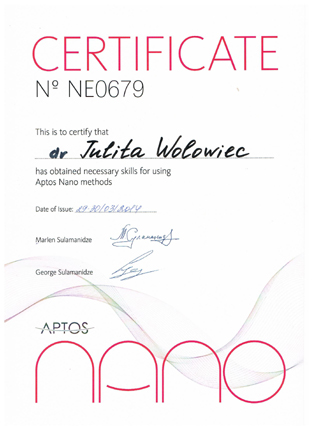 CERTIFICATE
Nº NE0679
This is to certify that
dr Julita Wołowiec
has obtained necessary skills for using
Aptos Nano methods
Date of Issue:
Marlen Sulamanidze
George Sulamanidze
APTOS
nano